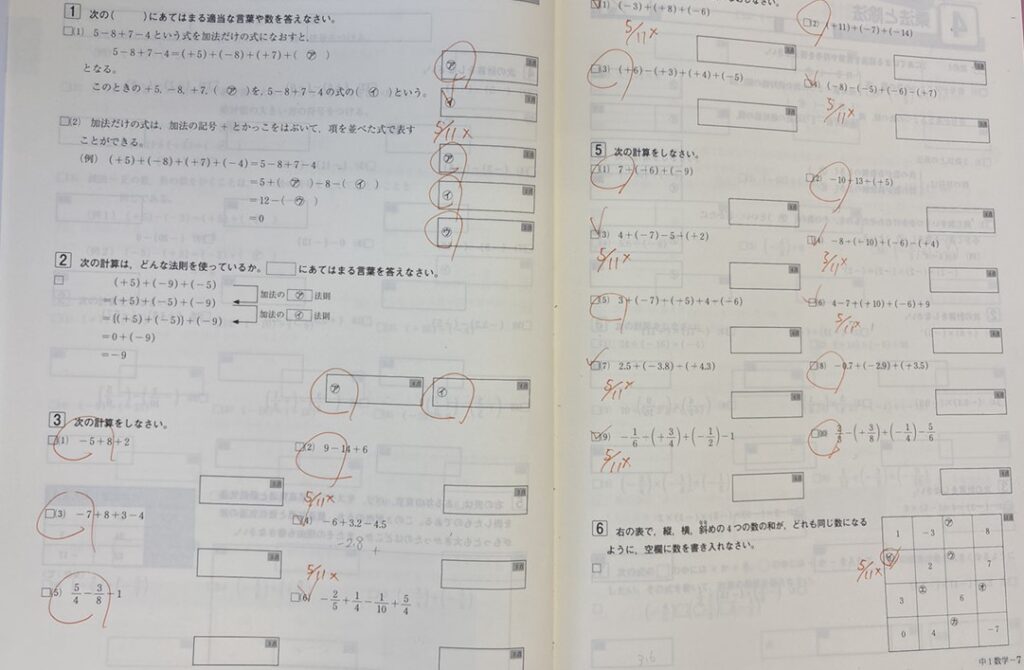 1 次の( )にあてはまる適当な言葉や数を答えなさい。
□(1) 5−8+7−4という式を加法だけの式になおすと,
5−8+7−4=(+5)+(−8)+(+7)+( ㋐ )
となる。
このときの+5, −8, +7, ( ㋐ )を, 5−8+7−4の式の( ㋑ )という。
㋐
5/11×
□(2) 加法だけの式は, 加法の記号+とかっこをはぶいて, 項を並べた式で表す
ことができる。
(例) (+5)+(−8)+(+7)+(−4)=5−8+7−4
=5+( ㋐ )−8−( ㋑ )
=12−( ㋒ )
=0
㋐
㋑
㋒
2 次の計算は, どんな法則を使っているか。 にあてはまる言葉を答えなさい。
□ (+5)+(−9)+(−5)
=(+5)+(−5)+(−9) 加法の ㋐ 法則
={(+5)+(−5)}+(−9) 加法の ㋑ 法則
=0+(−9)
=−9
㋐ ㋑
3 次の計算をしなさい。
□(1) −5+8+2
□(2) 9−14+6
□(3) −7+8+3−4
5/11×
□(4) −6+3.2−4.5
−2.8 +
□(5) 5/4−3/8−1
5/11×
□(6) −2/5+1/4−1/10+5/4
□(1) (−3)+(+8)+(−6)
5/11×
□(2) (+11)+(−7)+(−14)
□(3) (+6)−(+3)+(+4)−(−5)
□(4) (−8)−(−5)+(−6)−(+7)
5/11×
5 次の計算をしなさい。
□(1) 7+(−6)+(−9)
□(2) −10+13+(+5)
□(3) 4+(−7)−5+(+2)
5/11×
□(4) −8+(+10)+(−6)−(+4)
5/11×
□(5) 3+(−7)+(+5)+4−(−6)
□(6) 4−7+(+10)+(−6)+9
□(7) 2.5+(−3.8)+(+4.3)
5/11×
□(8) −0.7+(−2.9)+(+3.5)
□(9) −1/6+(+3/4)+(−1/2)−1
5/11×
−(+3/8)+(−1/4)−5/6
6 右の表で, 縦, 横, 斜めの4つの数の和が, どれも同じ数になる
ように, 空欄に数を書き入れなさい。
□
5/11×
1 −3 ㋐ 8
㋑ 2 ㋒ 7
3 ㋓ 6 ㋔
0 4 ㋕ −7
中1数学−7